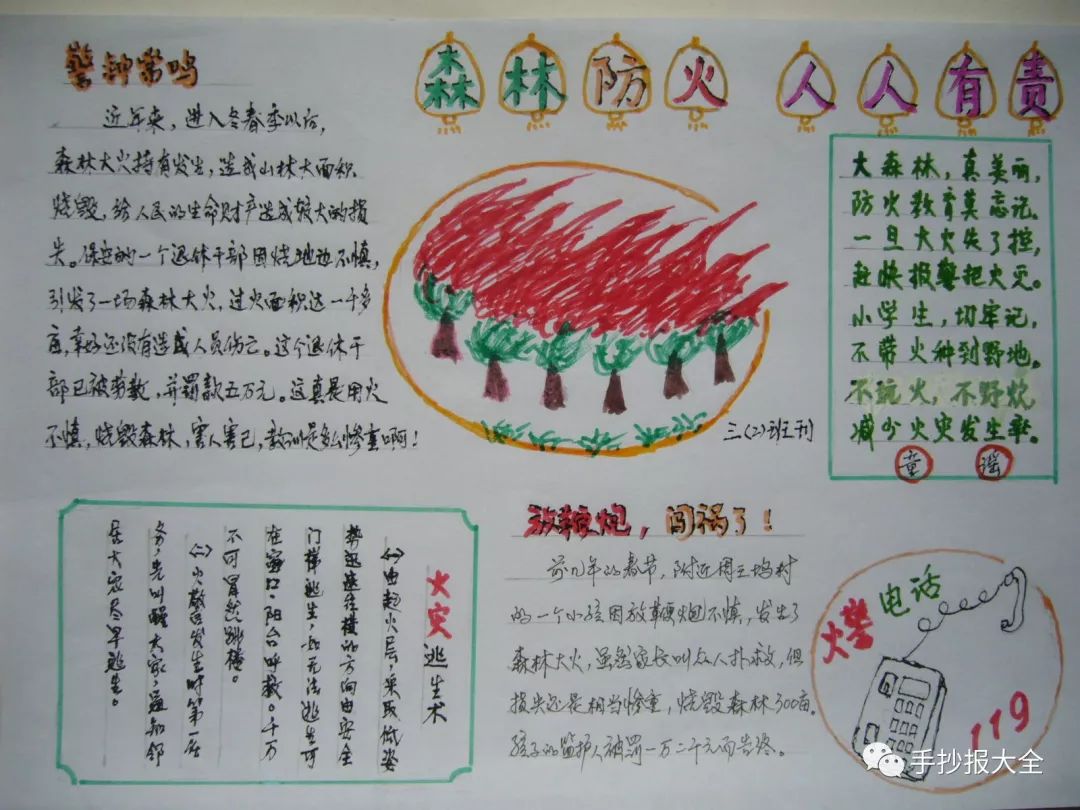 森林防火 人人有责
警钟常鸣
近年来，进入冬春季以后，
森林大火持有发生，造成山林大面积
烧毁，给人民的生命财产造成较大的损
失。保安的一个退休干部因烧地边不慎，
引发了一场森林大火，过火面积达一千多
亩，幸好还没有造成人员伤亡。这个退休干
部已被劳教，并罚款五万元。这真是用火
不慎，烧毁森林，害人害己，教训是多么惨重啊！
三(2)班刊
大森林，真美丽，
防火教育莫忘记。
一旦大火失了控，
赶快报警把火灭。
小学生，切牢记，
不带火种到野地。
不玩火，不野炊，
减少火灾发生率。
童谣
火灾逃生术
(一)由起火层，采取低姿
势迅速往楼的方向由安全
门梯逃生，如无法逃生可
在窗口、阳台呼救。千万
不可冒然跳楼。
(二)火警发生时第一任
务，先叫醒大家，通知邻
居大家尽早逃生。
放鞭炮，闯祸了！
前几年的春节，附近周王坞村
的一个小孩因放鞭炮不慎，发生了
森林大火，虽然家长叫众人扑救，但
损失还是相当惨重，烧毁森林300亩。
孩子的监护人被罚一万二千元而告终。
火警电话
119
手抄报大全